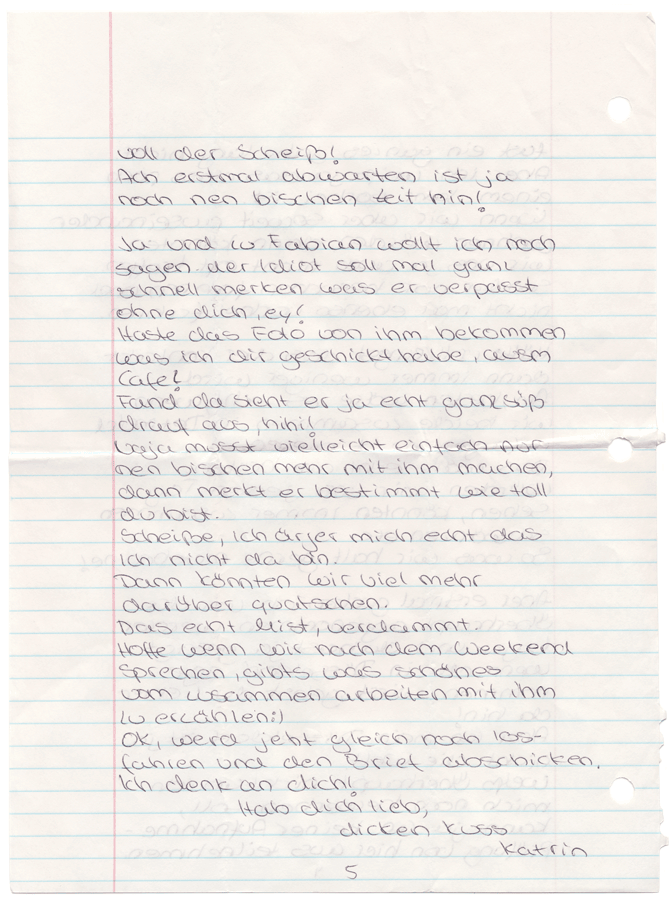 voll der Scheiß!
Ach erstmal abwarten ist ja
noch nen bischen Zeit hin!
Ja und zu Fabian wollt ich noch
sagen der Idiot soll mal ganz
schnell merken was er verpasst
ohne dich, ey!
Haste das Foto von ihm bekommen
was ich dir geschickt habe, ausm
Cafe!
Fand da sieht er ja echt ganz süß
drauf aus, hihi!
Naja musst vielleicht einfach nur
nen bischen mehr mit ihm machen,
dann merkt er bestimmt wie toll
du bist.
Scheiße, ich ärger mich echt das
ich nicht da bin.
Dann könnten wir viel mehr
darüber quatschen.
Das echt Mist, verdammt.
Hoffe wenn wir nach dem Weekend
sprechen, gibts was schönes
vom zusammen arbeiten mit ihm
zu erzählen:)
OK, werd jetzt gleich noch los-
fahren und den Brief abschicken.
Ich denk an dich!
Hab dich lieb,
dicken Kuss
Katrin
5